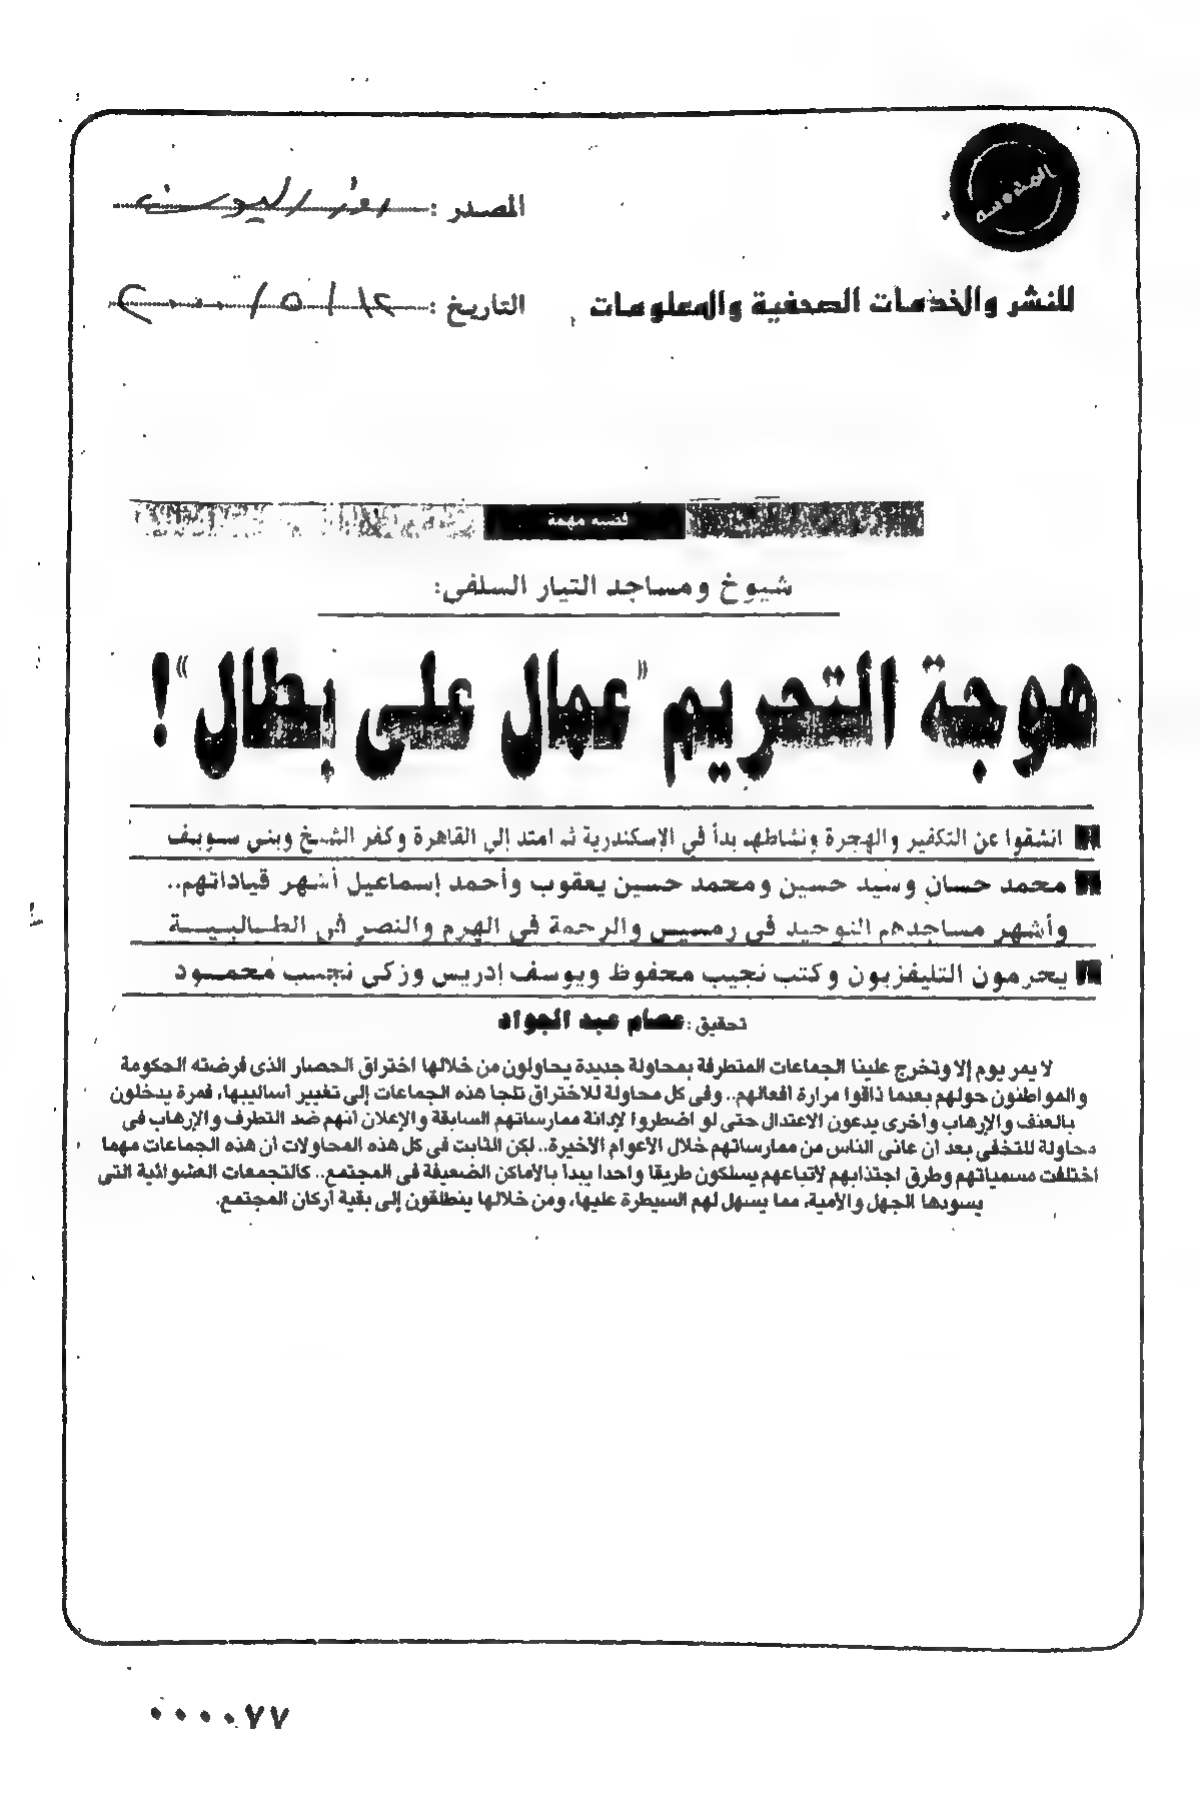 المصدر : روز اليوسف
للنشر والخدمات الصحفية والمعلومات
التاريخ : ١٢ / ٥ / ٢٠٠٠
قضية مهمة
شيوخ ومساجد التيار السلفى:
هوجة التحريم «عمال على بطال»!
انشقوا عن التكفير والهجرة ونشاطهم بدأ في الإسكندرية ثم امتد إلي القاهرة وكفر الشيخ وبنى سويف
محمد حسان وسيد حسين ومحمد حسين يعقوب وأحمد إسماعيل أشهر قياداتهم..
وأشهر مساجدهم التوحيد فى رمسيس والرحمة فى الهرم والنصر فى الطالبية
يحرمون التليفزيون وكتب نجيب محفوظ ويوسف إدريس وزكى نجيب محمود
تحقيق: عصام عبد الجواد
لا يمر يوم إلا وتخرج علينا الجماعات المتطرفة بمحاولة جديدة يحاولون من خلالها اختراق الحصار الذى فرضته الحكومة
والمواطنون حولهم بعدما ذاقوا مرارة أفعالهم.. وفى كل محاولة للاختراق تلجأ هذه الجماعات إلى تغيير أساليبها، فمرة يدخلون
بالعنف والإرهاب وأخرى يدعون الاعتدال حتى لو اضطروا لإدانة ممارساتهم السابقة والإعلان أنهم ضد التطرف والإرهاب فى
محاولة للتخفى بعد أن عانى الناس من ممارساتهم خلال الأعوام الأخيرة.. لكن الثابت فى كل هذه المحاولات أن هذه الجماعات مهما
اختلفت مسمياتهم وطرق اجتذابهم لأتباعهم يسلكون طريقا واحدا يبدأ بالأماكن الضعيفة فى المجتمع.. كالتجمعات العشوائية التى
يسودها الجهل والأمية، مما يسهل لهم السيطرة عليها، ومن خلالها ينطلقون إلى بقية أركان المجتمع.
٠٠٠٠٧٧